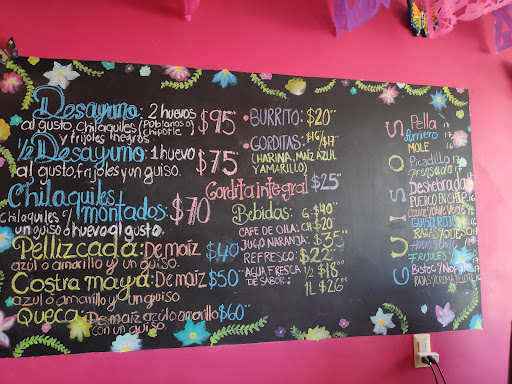 Desayuno: 2 huevos
al gusto, chilaquiles (Poblanos o Chipotle
y frijoles negros $95
1/2 Desayuno: 1 huevo
al gusto, frijoles y un guiso. $75
Chilaquiles
montados: $70
Chilaquiles c/
un guiso ó huevo al gusto.
Pellizcada: De maíz $40
azúl o amarillo y un guiso.
Costra maya: De maíz $50
azul o amarillo y un guiso.
Queca: De maíz azul o amarillo $60
con un guiso.
• BURRITO: $20
• GORDITAS: $16/$17
(HARINA, MAÍZ AZUL
Y AMARILLO)
Gordita integral $25
Bebidas: G. $40
CAFE DE OLLA: CH $20
JUGO NARANJA: $35
REFRESCO: $22
AGUA FRESCA 1/2 $18
DE SABOR: 1L $26
GUISOS
Pella
Arriero
MOLE
Picadillo
Deshebrada
PUERCO EN CHILE
GUISO ROJO
RAJAS Y QUESO
FRIJOLES
Bistec c/Nopales